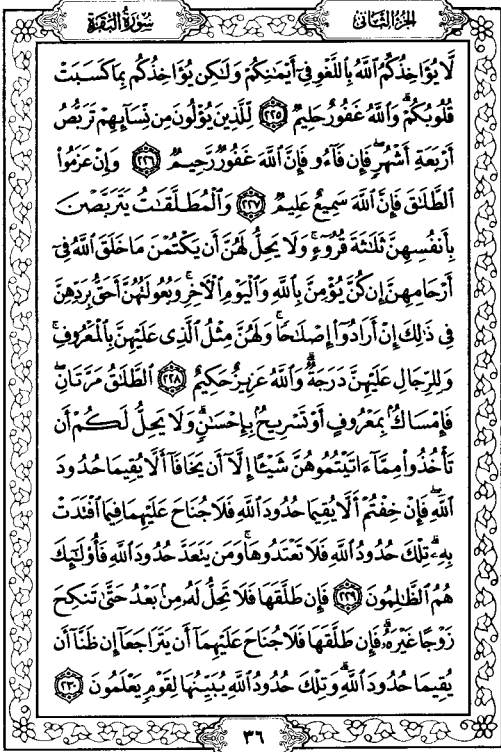 سُورَةُ البَقَرَةِ
الجُزْءُ الثَّانِي
لَّا يُؤَاخِذُكُمُ اللَّهُ بِاللَّغْوِ فِي أَيْمَانِكُمْ وَلَٰكِن يُؤَاخِذُكُم بِمَا كَسَبَتْ
قُلُوبُكُمْ ۗ وَاللَّهُ غَفُورٌ حَلِيمٌ ٢٢٥ لِّلَّذِينَ يُؤْلُونَ مِن نِّسَائِهِمْ تَرَبُّصُ
أَرْبَعَةِ أَشْهُرٍ ۖ فَإِن فَاءُو فَإِنَّ اللَّهَ غَفُورٌ رَّحِيمٌ ٢٢٦ وَإِنْ عَزَمُوا
الطَّلَاقَ فَإِنَّ اللَّهَ سَمِيعٌ عَلِيمٌ ٢٢٧ وَالْمُطَلَّقَاتُ يَتَرَبَّصْنَ
بِأَنفُسِهِنَّ ثَلَاثَةَ قُرُوءٍ ۚ وَلَا يَحِلُّ لَهُنَّ أَن يَكْتُمْنَ مَا خَلَقَ اللَّهُ فِي
أَرْحَامِهِنَّ إِن كُنَّ يُؤْمِنَّ بِاللَّهِ وَالْيَوْمِ الْآخِرِ ۚ وَبُعُولَتُهُنَّ أَحَقُّ بِرَدِّهِنَّ
فِي ذَٰلِكَ إِنْ أَرَادُوا إِصْلَاحًا ۚ وَلَهُنَّ مِثْلُ الَّذِي عَلَيْهِنَّ بِالْمَعْرُوفِ ۚ
وَلِلرِّجَالِ عَلَيْهِنَّ دَرَجَةٌ ۗ وَاللَّهُ عَزِيزٌ حَكِيمٌ ٢٢٨ الطَّلَاقُ مَرَّتَانِ ۖ
فَإِمْسَاكٌ بِمَعْرُوفٍ أَوْ تَسْرِيحٌ بِإِحْسَانٍ ۗ وَلَا يَحِلُّ لَكُمْ أَن
تَأْخُذُوا مِمَّا آتَيْتُمُوهُنَّ شَيْئًا إِلَّا أَن يَخَافَا أَلَّا يُقِيمَا حُدُودَ
اللَّهِ ۖ فَإِنْ خِفْتُمْ أَلَّا يُقِيمَا حُدُودَ اللَّهِ فَلَا جُنَاحَ عَلَيْهِمَا فِيمَا افْتَدَتْ
بِهِ ۗ تِلْكَ حُدُودُ اللَّهِ فَلَا تَعْتَدُوهَا ۚ وَمَن يَتَعَدَّ حُدُودَ اللَّهِ فَأُولَٰئِكَ
هُمُ الظَّالِمُونَ ٢٢٩ فَإِن طَلَّقَهَا فَلَا تَحِلُّ لَهُ مِن بَعْدُ حَتَّىٰ تَنكِحَ
زَوْجًا غَيْرَهُ ۗ فَإِن طَلَّقَهَا فَلَا جُنَاحَ عَلَيْهِمَا أَن يَتَرَاجَعَا إِن ظَنَّا أَن
يُقِيمَا حُدُودَ اللَّهِ ۗ وَتِلْكَ حُدُودُ اللَّهِ يُبَيِّنُهَا لِقَوْمٍ يَعْلَمُونَ ٢٣٠
٣٦